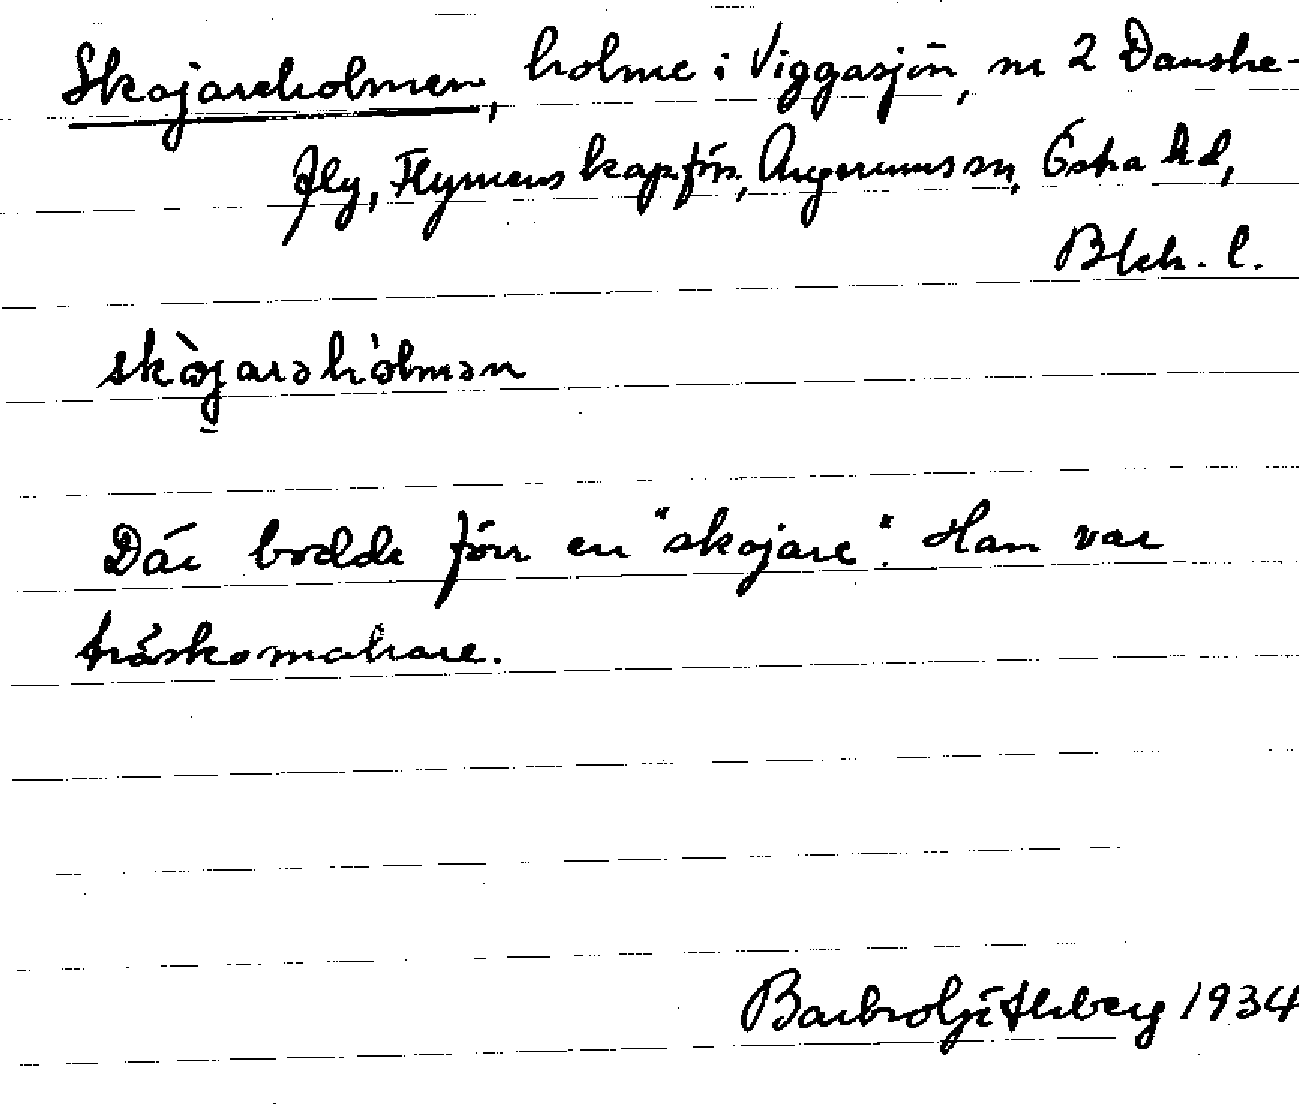 Skojareholmen, holme i Viggasjön, nr 2 Danske-
fly, Flymens kapfös, Augerums sn, Östra hd,
Blek. l.
skòjarəhòlmən
Där bodde förr en "skojare". Han var
träskomakare.
Barbro Götherberg 1934